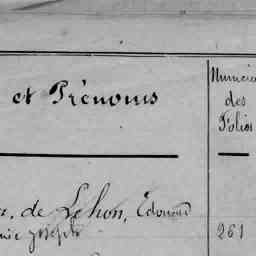 et Prénoms
Numéros
des
Folios
de Lehon, Edouard
Joseph
261